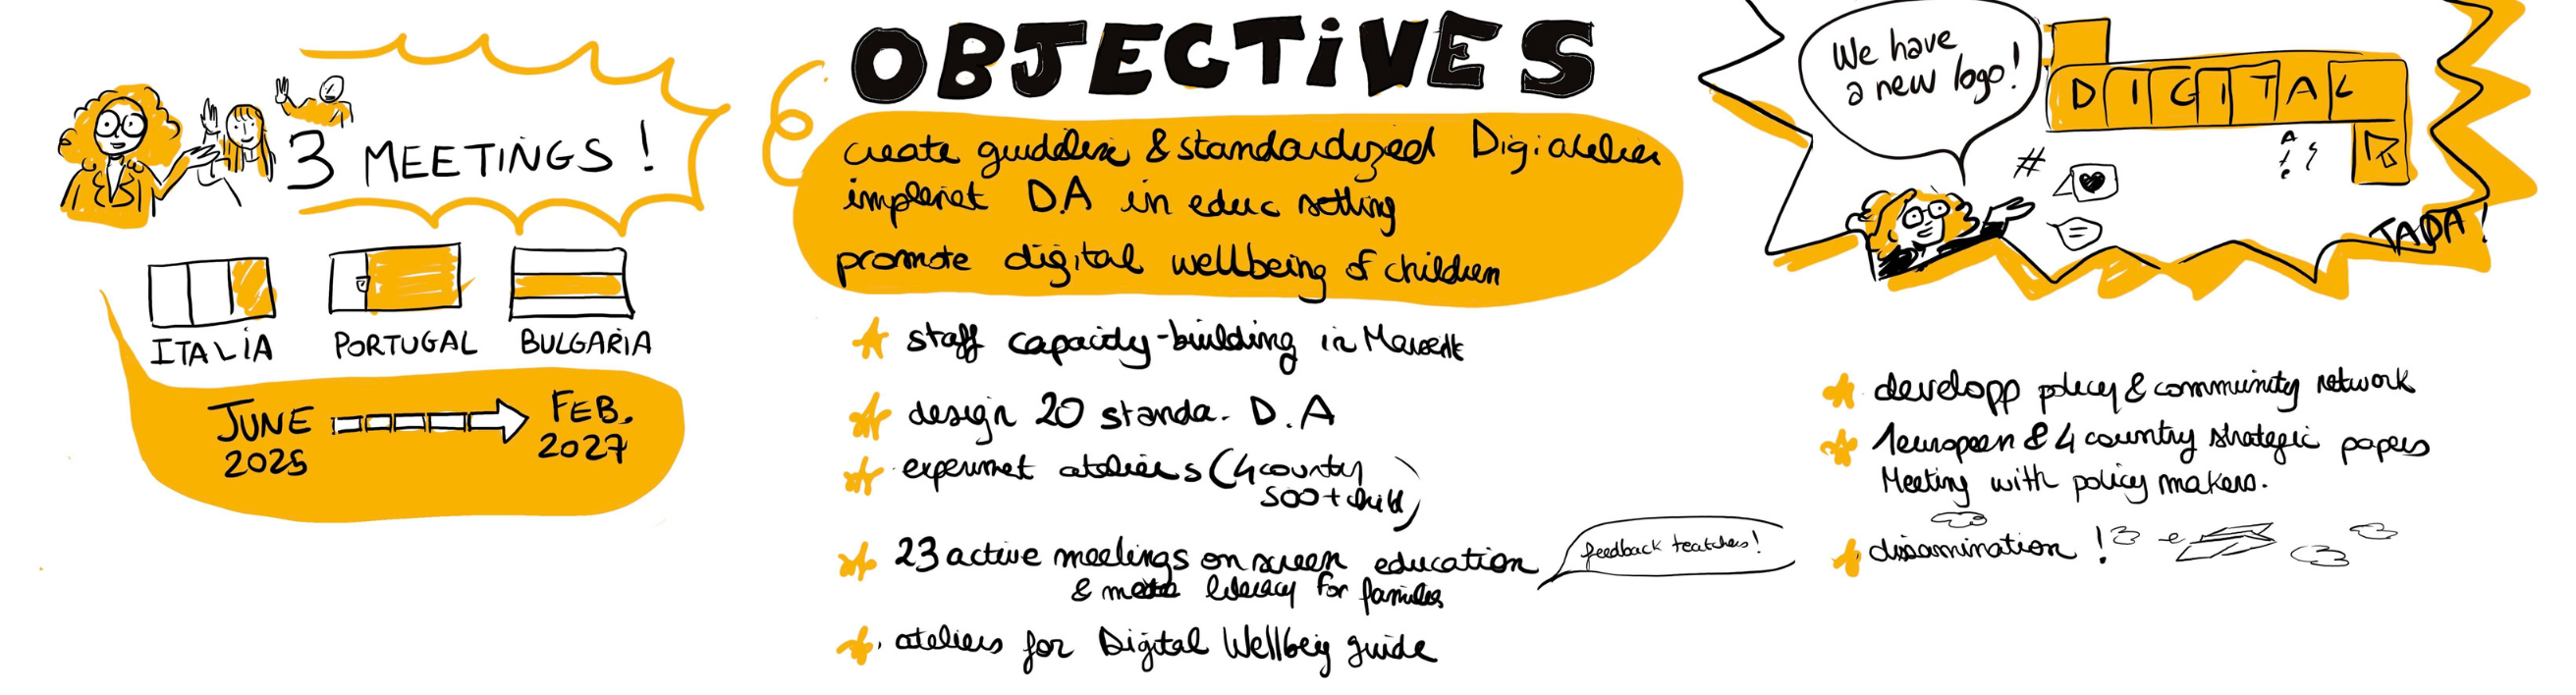 3 MEETINGS !
ITALIA
PORTUGAL
BULGARIA
JUNE
2025
FEB.
2027
OBJECTIVES
create guideline & standardized Digiatelier
implemet D.A in educ setting
promote digital wellbeing of children
staff capacity-building in
design 20 standa. D.A
experimet ateliers (4 country
500+ child)
23 active meetings on screen education
& literacy for families
feedback teatchers!
ateliers for Digital Wellbeig guide
We have
a new logo!
DIGITAL
#
TADA!
developp policy & community network
1 european & 4 country strategic papers
Meeting with policy makers.
dissamination !